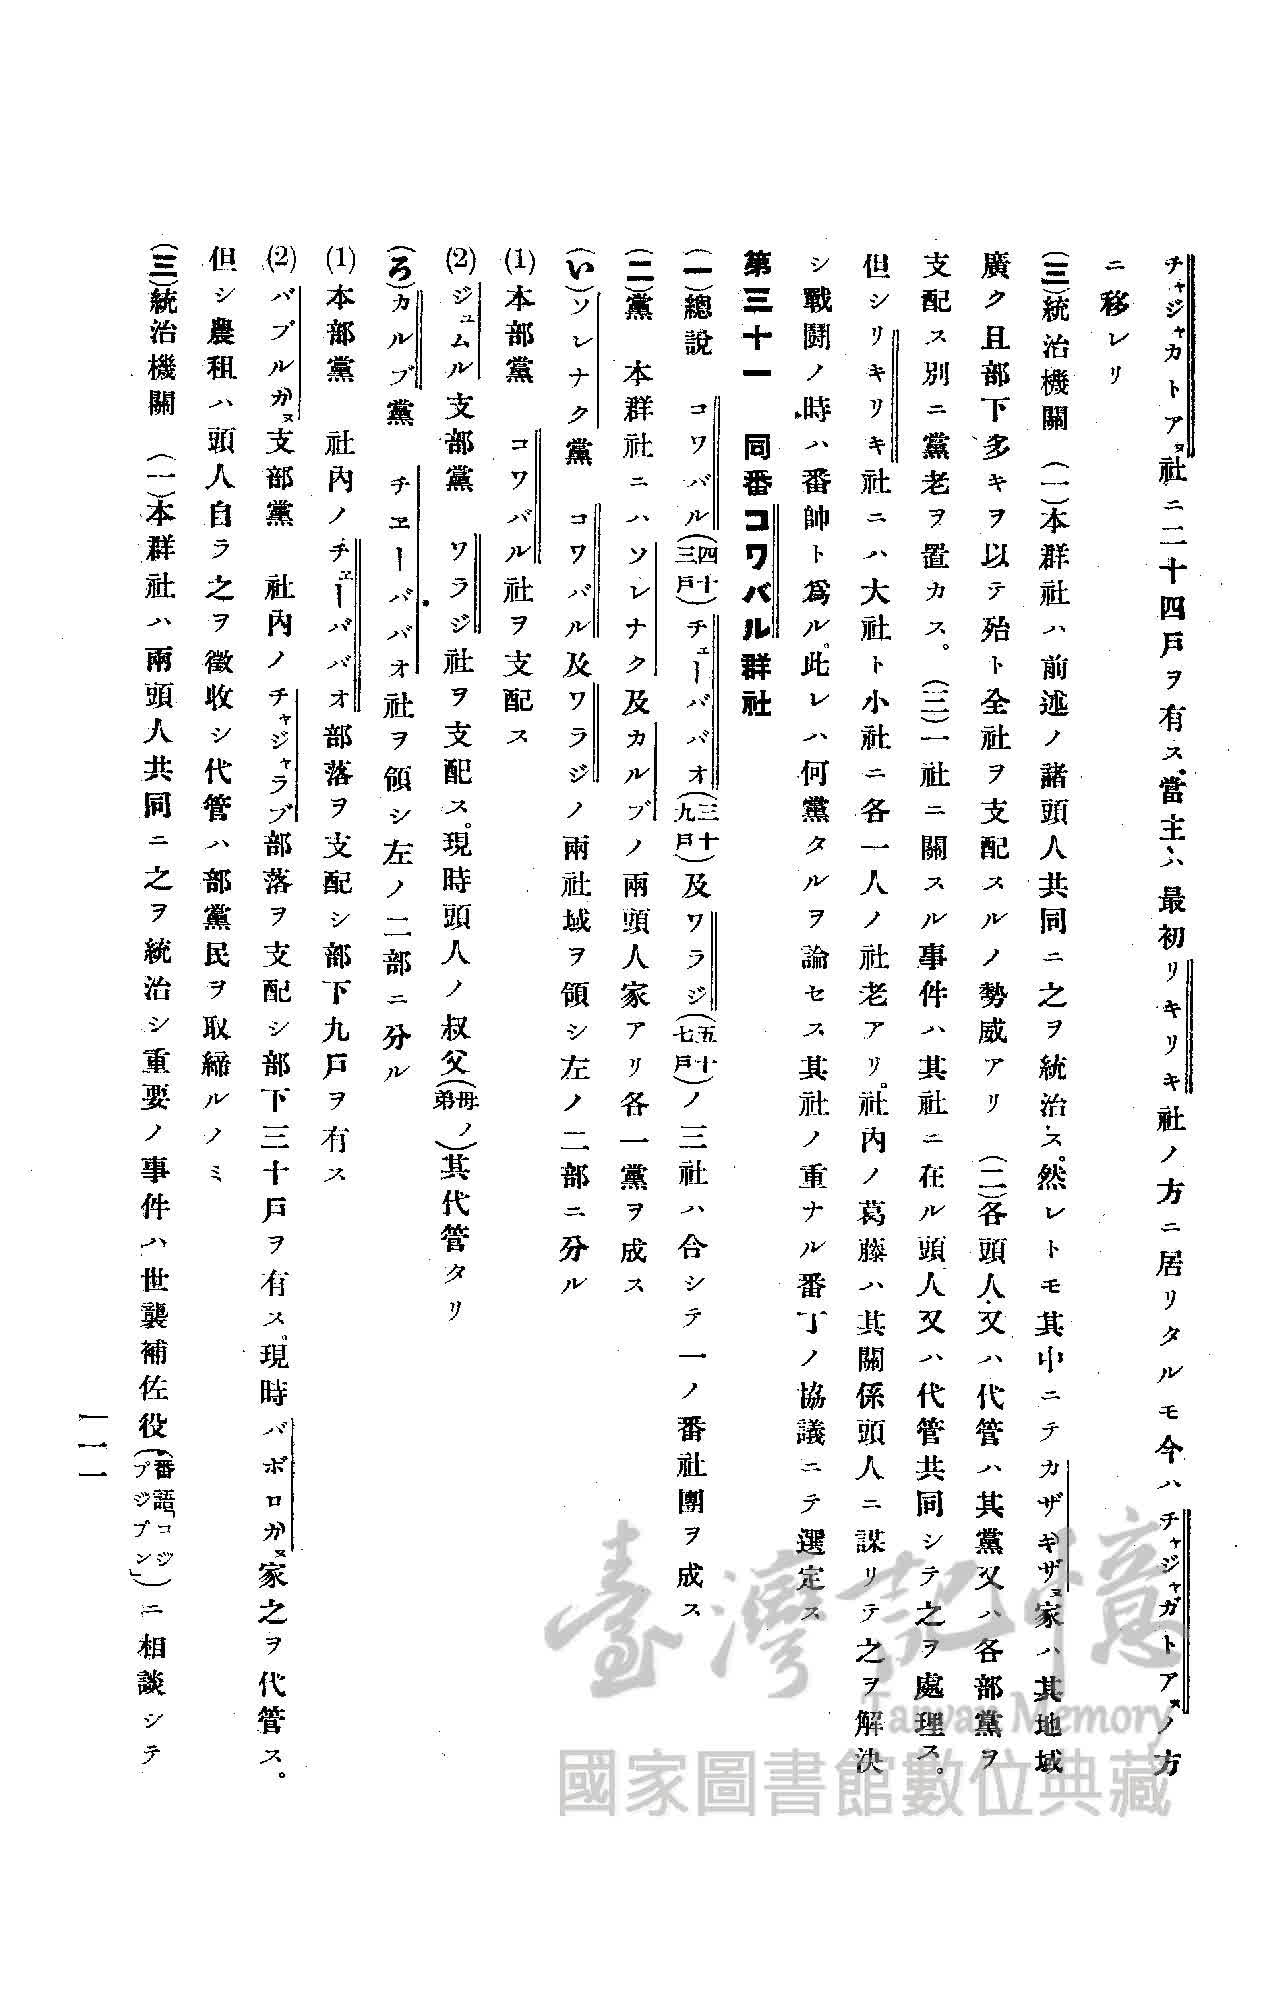 チャジャカトアヌ社ニ二十四戸ヲ有ス、當主ハ最初リキリキ社ノ方ニ居リタルモ今ハチャジャガトアヌノ方
ニ移レリ
(三)統治機關　(一)本群社ハ前述ノ諸頭人共同ニ之ヲ統治ス。然レトモ其中ニテカザギザヌ家ハ其地域
廣ク且部下多キヲ以テ殆ト全社ヲ支配スルノ勢威アリ　(二)各頭人又ハ代管ハ其黨又ハ各部黨ヲ
支配ス別ニ黨老ヲ置カス。(三)一社ニ關スル事件ハ其社ニ在ル頭人又ハ代管共同シテ之ヲ處理ス。
但シリキリキ社ニハ大社ト小社ニ各一人ノ社老アリ。社內ノ葛藤ハ其關係頭人ニ謀リテ之ヲ解決
シ戰鬪ノ時ハ番帥ト爲ル。此レハ何黨タルヲ論セス其社ノ重ナル番丁ノ協議ニテ選定ス
第三十一　同番コワバル群社
(一)總說　コワバル(四十三戸)チェーババオ(三十九戸)及ワラジ(五十七戸)ノ三社ハ合シテ一ノ番社團ヲ成ス
(二)黨　本群社ニハソレナク及カルブノ兩頭人家アリ各一黨ヲ成ス
(い)ソレナク黨　コワバル及ワラジノ兩社域ヲ領シ左ノ二部ニ分ル
(1)本部黨　コワバル社ヲ支配ス
(2)ジュムル支部黨　ワラジ社ヲ支配ス。現時頭人ノ叔父(母ノ弟)其代管タリ
(ろ)カルブ黨　チエーババオ社ヲ領シ左ノ二部ニ分ル
(1)本部黨　社內ノチェーババオ部落ヲ支配シ部下九戸ヲ有ス
(2)バブルガヌ支部黨　社內ノチャジャラブ部落ヲ支配シ部下三十戸ヲ有ス。現時バボロガヌ家之ヲ代管ス。
但シ農租ハ頭人自ラ之ヲ徵收シ代管ハ部黨民ヲ取締ルノミ
(三)統治機關　(一)本群社ハ兩頭人共同ニ之ヲ統治シ重要ノ事件ハ世襲補佐役(番語「コジプジブン」)ニ相談シテ
一一一
臺灣記憶
Taiwan Memory
國家圖書館數位典藏